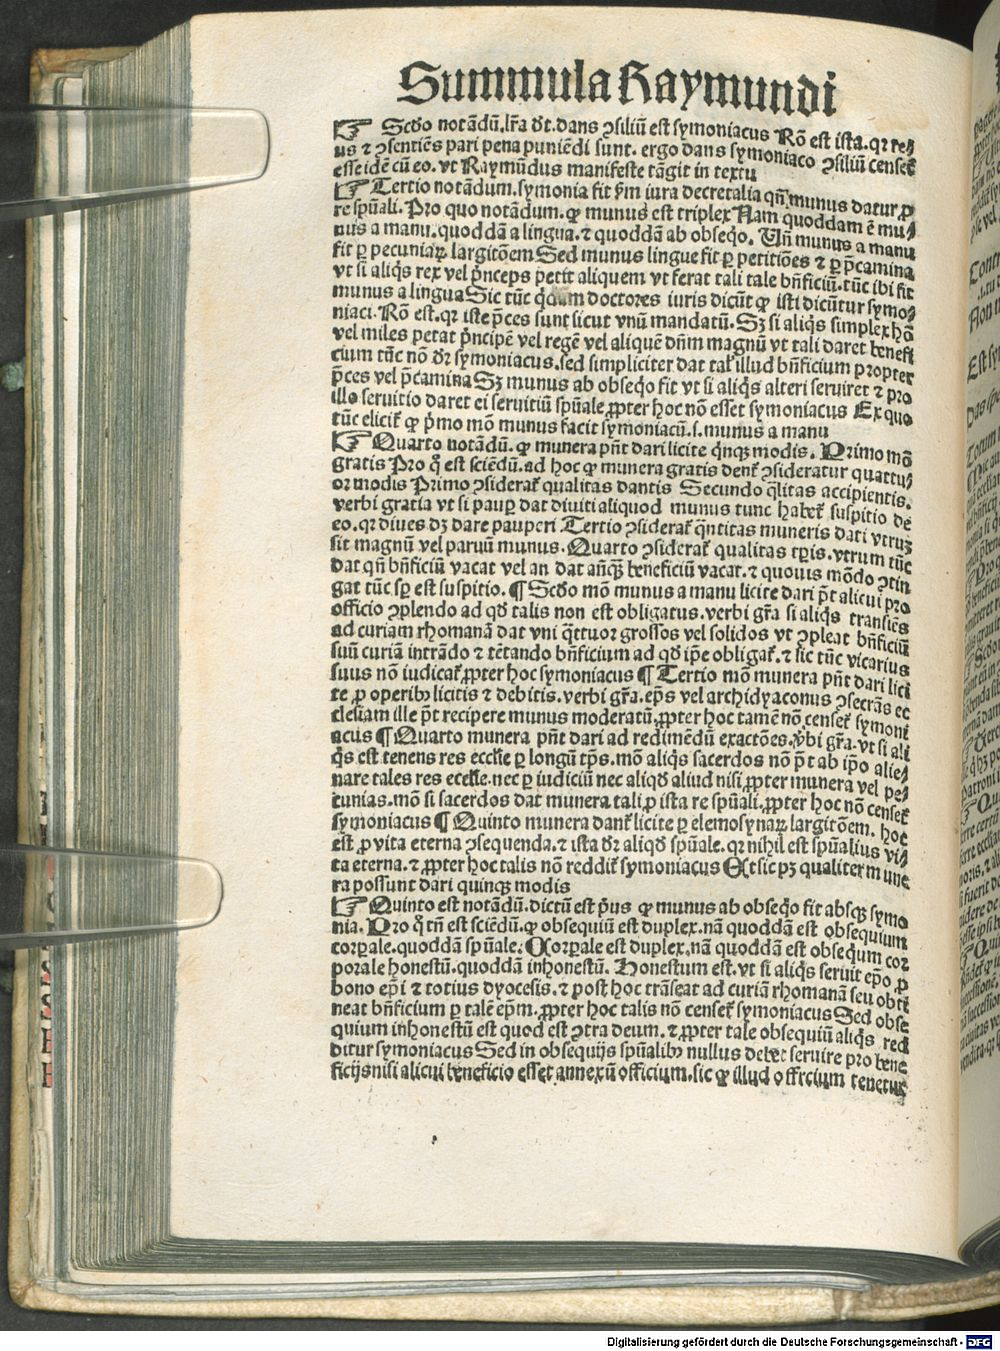 Summula Raymundi
☞ Scd̄o notādū.lr̄a d̄t.dans ↄsiliū est symoniacus Rō est ista.qꝛ reꝰ
us ⁊ ↄsentiēs pari pena puniēdi sunt. ergo dans symoniaco ↄsiliū censet̄
esse idē cū eo. vt Raymūdus manifeste tāgit in textu
☞ Tertio notādum.symonia fit ẜm iura decretalia qn̄ munus datur ꝓ
re spūali. Pro quo notādum. ꝙ munus est triplex Nam quoddam ē mu⸗
nus a manu. quoddā a lingua. ⁊ quoddā ab obseqͦo. Vn̄ munus a manu
fit ꝑ pecuniaꝝ largitōem Sed munus lingue fit ꝑ petitiōes ⁊ ꝑ p̄camina
vt si aliqͥs rex vel pͥnceps petit aliquem vt ferat tali tale bn̄ficiū. tūc ibi fit
munus a lingua Sic tūc doctores iuris dicūt ꝙ isti dicūtur symo⸗
niaci. Rō est. qꝛ iste p̄ces sunt sicut vnū mandatū. Sꝫ si aliqͥs simplex hō
vel miles petat pͥncipē vel regē vel aliquē dn̄m magnū vt tali daret benefi
cium tūc nō d̄r symoniacus. sed simpliciter dat tal̄ illud bn̄ficium propter
p̄ces vel p̄camina Sꝫ munus ab obseqͦo fit vt si aliqͥs alteri seruiret ⁊ pro
illo seruitio daret ei seruitiū spūale ꝓpter hoc nō esset symoniacus Ex quo
tūc elicit̄ ꝙ pͥmo mō munus facit symoniacū. s. munus a manu
☞ Quarto notādū. ꝙ munera pn̄t dari licite qͥnqꝫ modis. Primo mō
gratis Pro qͦ est sciēdū. ad hoc ꝙ munera gratis dent̄ ↄsideratur quattu⸗
or modis Primo ↄsiderat̄ qualitas dantis Secundo qͣlitas accipientis.
verbi gratia vt si pauꝑ dat diuiti aliquod munus tunc habet̄ suspitio de
eo. qꝛ diues dꝫ dare pauperi Tertio ↄsiderat̄ qͣntitas muneris dati vtruꝫ
sit magnū vel paruū munus. Quarto ↄsiderat̄ qualitas tꝑis. vtrum tūc
dat qn̄ bn̄ficiū vacat vel an dat an̄qͣꝫ beneficiū vacat. ⁊ quouis mōdo ↄtin
gat tūc sꝑ est suspitio. ¶ Scd̄o mō munus a manu licite dari pōt alicui pro
officio ↄplendo ad qd̄ talis non est obligatus. verbi gr̄a si aliqͥs transiēs
ad curiam rhomanā dat vni qͣttuor grossos vel solidos vt ↄpleat bn̄ficiū
suū curiā intrādo ⁊ tētando bn̄ficium ad qd̄ ip̄e obligat̄. ⁊ sic tūc vicarius
suus nō iudicat̄ ꝓpter hoc symoniacus ¶ Tertio mō munera pn̄t dari lici
te ꝓ operibꝰ licitis ⁊ debitis. verbi gr̄a. ep̄s vel archidyaconus ↄsecrās ec
clesiam ille pōt recipere munus moderatū ꝓpter hoc tamē nō censet̄ symoni
acus ¶ Quarto munera pn̄t dari ad redimēdū exactōes. v̄bi gr̄a. vt si ali
qͥs est tenens res eccl̄ie ꝑ longū tp̄s. mō aliqͥs sacerdos nō pōt ab ip̄o alie⸗
nare tales res eccl̄ie. nec ꝑ iudiciū nec aliqd̄ aliud nisi ꝓpter munera vel pe⸗
cunias. mō si sacerdos dat munera tali ꝓ ista re spūali. ꝓpter hoc nō censet̄
symoniacus ¶ Quinto munera dant̄ licite ꝑ elemosynaꝝ largitōem. hoc
est ꝓ vita eterna ↄsequenda. ⁊ ista d̄r aliqd̄ spūale. qꝛ nihil est spūalius vi⸗
ta eterna. ⁊ ꝓpter hoc talis nō reddit̄ symoniacus Et sic pꝫ qualiter mune
ra possunt dari quinqꝫ modis
☞ Quinto est notādū. dictū est pͥus ꝙ munus ab obseqͦo fit absqꝫ symo
nia. Pro qͦ tn̄ est sciēdū. ꝙ obsequiū est duplex. nā quoddā est obsequium
corꝑale. quoddā spūale. Corꝑale est duplex. nā quoddā est obseqͥum cor
porale honestū. quoddā inhonestū. Honestum est. vt si aliqͥs seruit ep̄o ꝓ
bono ep̄i ⁊ totius dyocesis. ⁊ post hoc trāseat ad curiā rhomanā seu obti
neat bn̄ficium ꝑ talē ep̄m. ꝓpter hoc talis nō censet̄ symoniacus Sed obse
quium inhonestū est quod est ↄtra deum. ⁊ ꝓpter tale obsequiū aliqͥs red
ditur symoniacus Sed in obsequijs spūalibꝰ nullus debet seruire pro bene
ficijs nisi alicui beneficio esset annexū officium. sic ꝙ illud officium tenetur
Digitalisierung gefördert durch die Deutsche Forschungsgemeinschaft - DFG